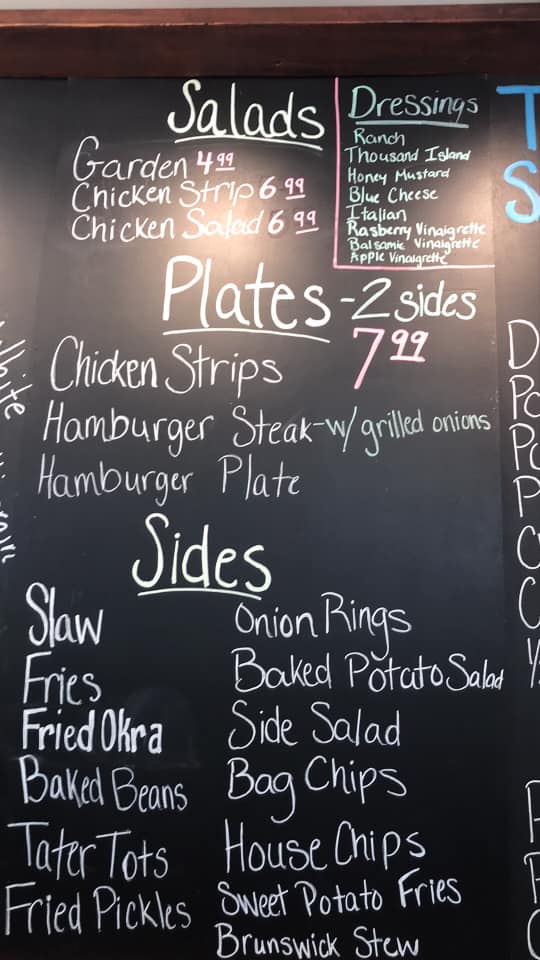 Salads
Garden 4.99
Chicken Strip 6.99
Chicken Salad 6.99
Dressings
Ranch
Thousand Island
Honey Mustard
Blue Cheese
Italian
Rasberry Vinaigrette
Balsamic Vinaigrette
Apple Vinaigrette
Plates - 2 sides
7.99
Chicken Strips
Hamburger Steak - w/ grilled onions
Hamburger Plate
Sides
Slaw
Fries
Fried Okra
Baked Beans
Tater Tots
Fried Pickles
Onion Rings
Baked Potato Salad
Side Salad
Bag Chips
House Chips
Sweet Potato Fries
Brunswick Stew